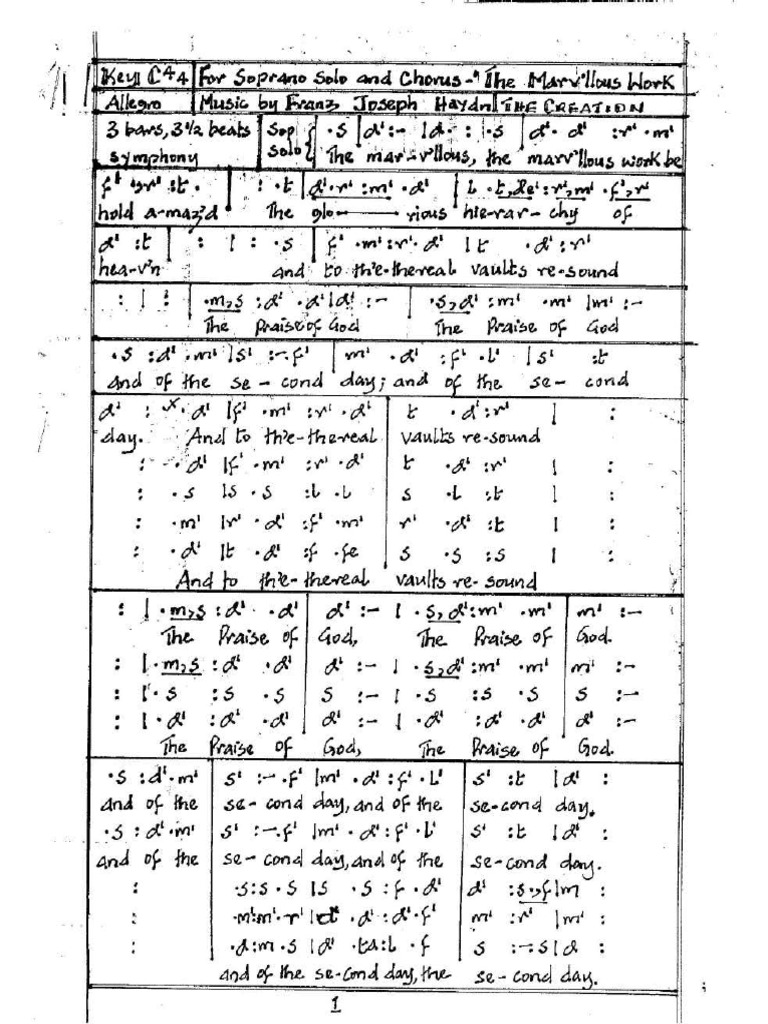 Key C 4/4 For Soprano Solo and Chorus - "The Marv'llous Work
Allegro Music by Franz Joseph Haydn THE CREATION
3 bars, 3½ beats Sop { . s | d' : - | d . : . s | d' . d' : r' . m'
symphony Solo { The mar-v'llous, the marv'llous work be
hold a-maz'd The glo rious hie-rar-chy of
d' : t | : | : . s | f' . m' : r' . d' | t . d' : r'
hea-v'n and to th'e-thereal vaults re-sound
: | : | . m, s : d' . d' | d' : - | . s, d' : m' . m' | m' : -
The Praise of God The Praise of God
. s : d' . m' | s' : - . f' | m' . d' : f' . l' | s' : t
and of the se-cond day; and of the se-cond
d' : x . d' | f' . m' : r' . d' | t . d' : r' | :
day. And to th'e-thereal vaults re-sound
: . d' | f' . m' : r' . d' | t . d' : r' | :
: . s | s . s : l . l | s . l : t | :
: . m' | r' . d' : f' . m' | r' . d' : t | :
: . d' | t . d' : f . fe | s . s : s | :
And to th'e-thereal vaults re-sound
: | . m, s : d' . d' | d' : - | . s, d' : m' . m' | m' : -
The Praise of God, The Praise of God.
: | . m, s : d' . d' | d' : - | . s, d' : m' . m' | m' : -
: | . s : s . s | s : - | . s : s . s | s : -
: | . d' : d' . d' | d' : - | . d' : d' . d' | d' : -
The Praise of God, The Praise of God.
. s : d' . m' | s' : - . f' | m' . d' : f' . l' | s' : t | d' :
and of the se-cond day, and of the se-cond day.
. s : d' . m' | s' : - . f' | m' . d' : f' . l' | s' : t | d' :
and of the se-cond day, and of the se-cond day.
: | . s : s . s | s . s : f . d' | d' : s . , f | m :
: | . m' : m' . r' | d' . d' : d' . f' | m' : r' | m' :
: | . d : m . s | d' . ta : l . f | s : - . s | d :
and of the se-cond day, the se-cond day.
1